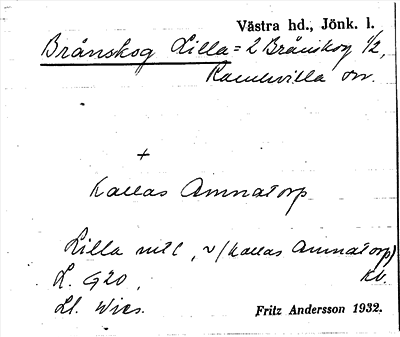 Västra hd., Jönk. l.
Brånskog Lilla = 2 Brånskog 1/2,
Ramkvilla sn.
+
Kallas Annatorp
Lilla
(Kallas Annatorp)
L. G20, Kv.
Ll.
Fritz Andersson 1932.